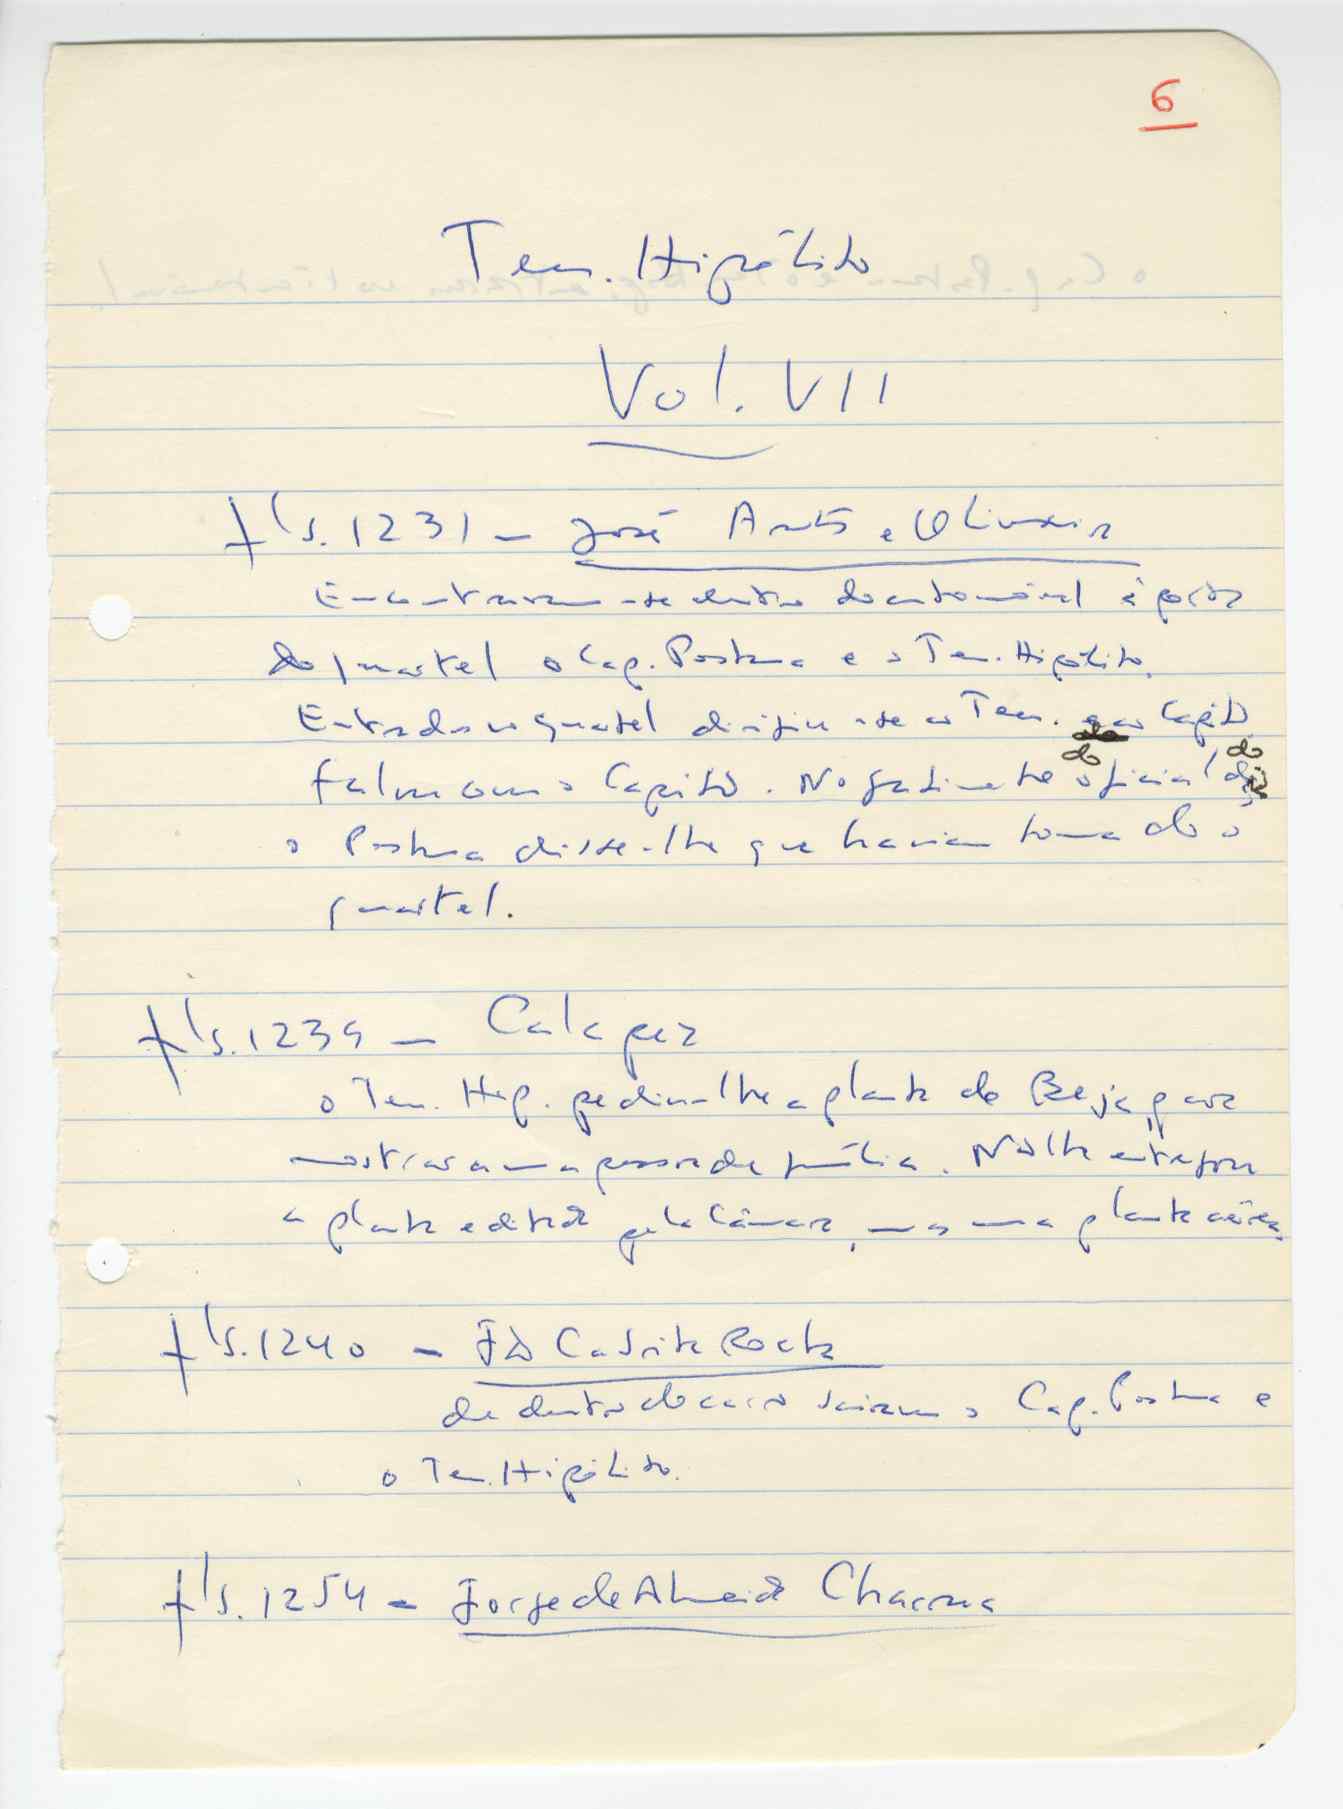 6
Ten. Hipólito
Vol. VII
fls. 1231 - José Antº e Oliveira
Encontravam-se dentro do automóvel à porta
do quartel o Cap. Pestana e o Ten. Hipólito.
Entrado no quartel dirigiu-se ao Ten. ao Capitão
falou com o Capitão. No gabinete do oficial de dia
o Pestana disse-lhe que haviam tomado o
quartel.
fls. 1239 - Calapez
o Ten. Hip. pediu-lhe a planta de Beja para
mostrar a uma pessoa de família. Não lhe entregou
a planta editada pela Câmara, mas uma planta aérea.
fls. 1240 - Rocha
de dentro do carro saíram o Cap. Pestana e
o Ten. Hipólito.
fls. 1254 - Jorge de Almeida